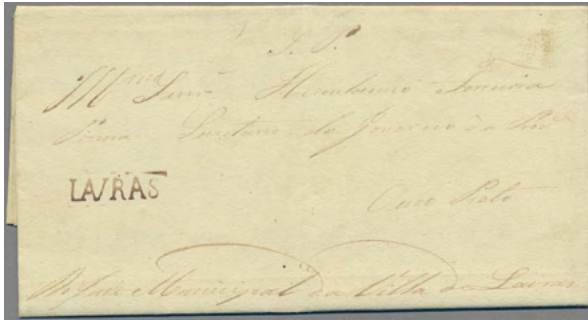 S. P.
Illmo Senr Herculano Ferreira
Penna Secretario do Governo da Prova
LAVRAS
Ouro Preto
Municipal da Villa de Lavras